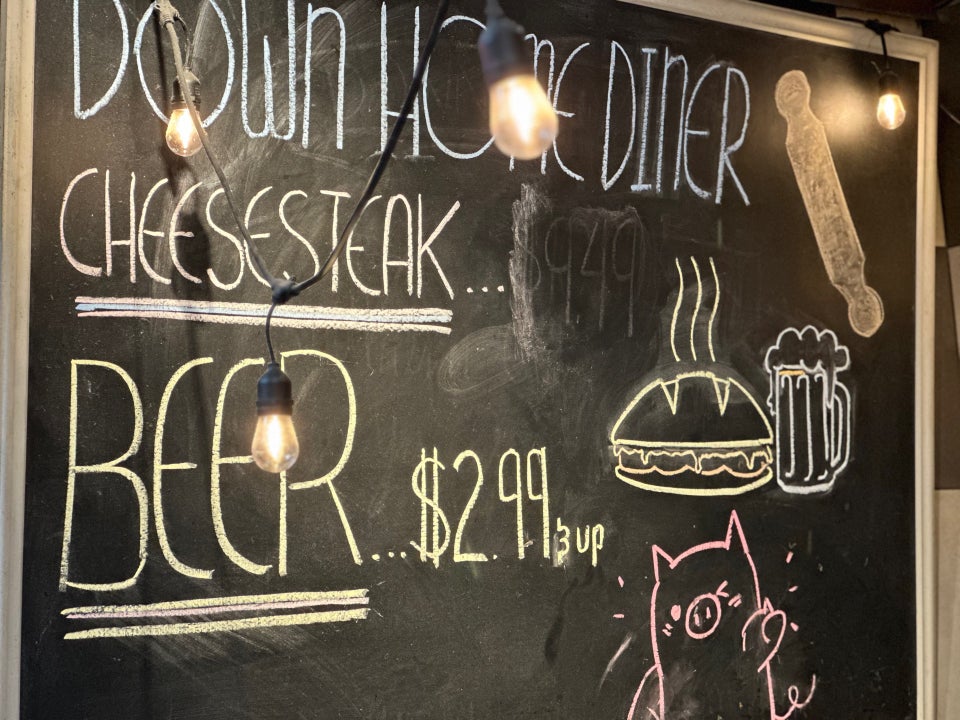 DOWN HOME DINER
CHEESESTEAK...
BEER...$2.99 & UP